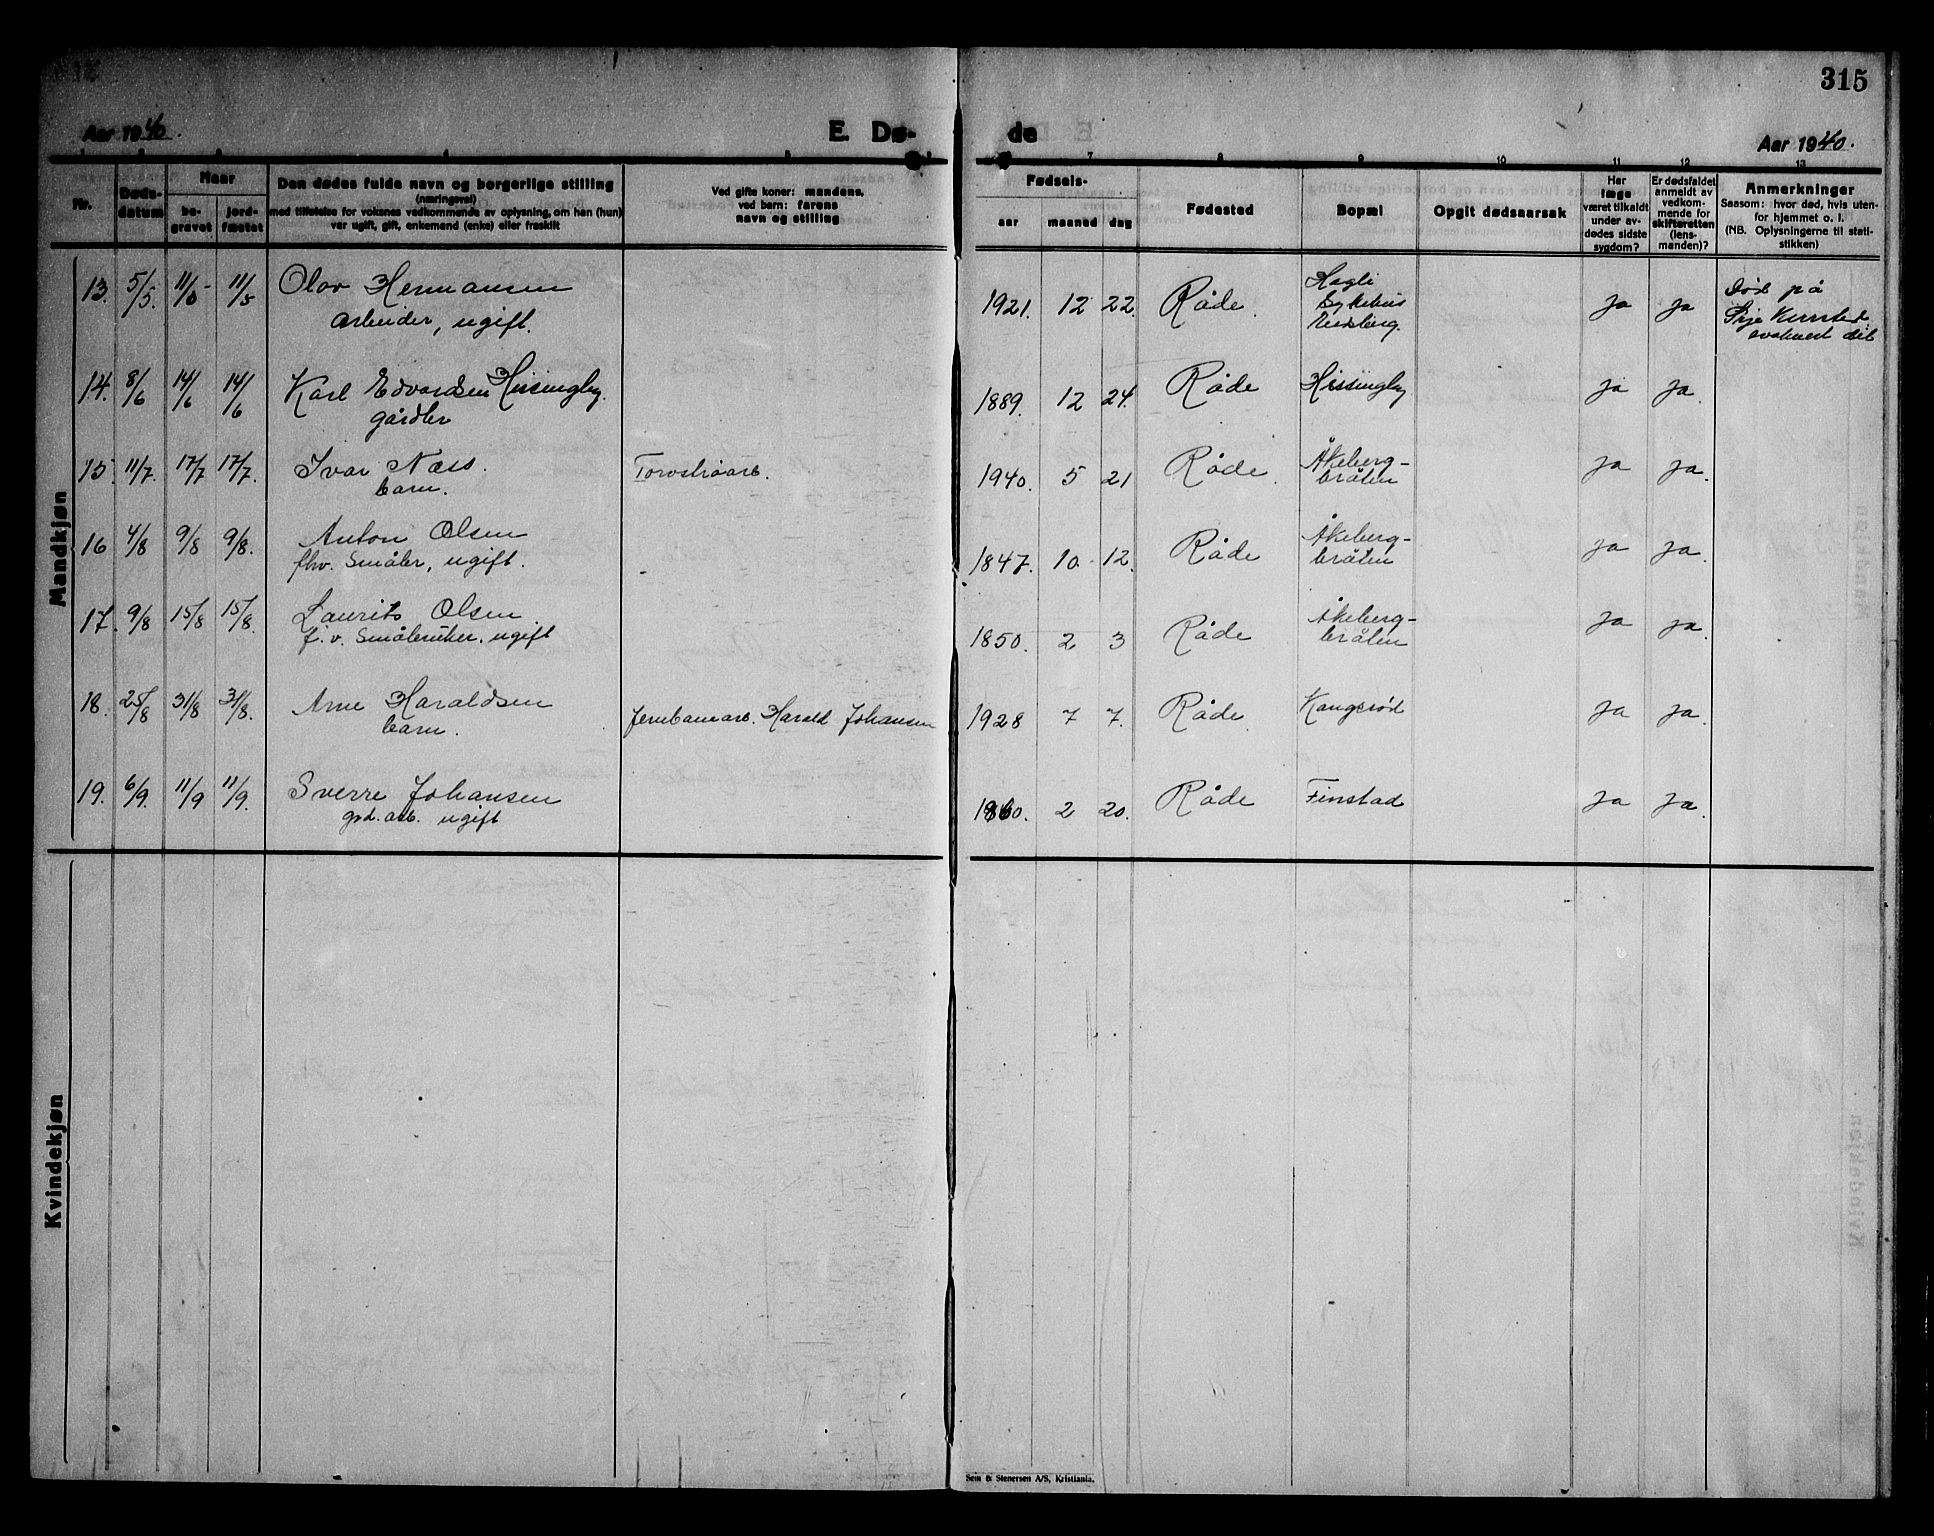 315
Aar 1940.
E. Dø-
de
Aar 1940.
Nr.
Døds-
datum
Naar
be-
gravet
jord-
fæstet
Den dødes fulde navn og borgerlige stilling
(næringsvei)
med tilføielse for voksnes vedkommende av oplysning, om han (hun)
var ugift, gift, enkemand (enke) eller fraskilt
Ved gifte koner: mandens,
ved barn: farens
navn og stilling
Fødsels-
aar
maaned
dag
Fødested
Bopæl
Opgit dødsaarsak
Har
læge
været tilkaldt
under av-
dødes sidste
sygdom?
Er dødsfaldet
anmeldt av
vedkom-
mende for
skifteretten
(lens-
manden)?
Anmerkninger
Saasom: hvor død, hvis uten-
for hjemmet o. l.
(NB. Oplysningerne til stati-
stikken)
7 8 9 10 11 12 13
Mandkjøn
13. 5/5. 11/5 11/5 Olav Hermansen 1921. 12 22. Råde. Hagli ja ja Død på
arbeider, ugift. Sykehus
evakuert dit
14. 8/6 14/6 14/6 Karl Edvardsen Hissingby. 1889. 12 24. Råde Hissingby ja ja.
gårdbr
15. 11/7. 17/7 17/7. Ivar Næss. Torvstrøarb. 1940. 5 21 Råde. Åkeberg- ja ja.
barn. bråten
16 4/8 9/8 9/8. Anton Olsen 1847. 10. 12. Råde Åkeberg- ja ja.
fhv. Småbr, ugift. bråten
17. 9/8 15/8 15/8. Laurits Olsen 1850. 2 3 Råde Åkeberg- ja ja.
f. v. Småbruker. ugift bråten
18. 25/8 31/8 31/8. Arne Haraldsen Jernbanearb. Harald Johansen 1928 7 7. Råde. Kangerød ja ja.
barn.
19. 6/9. 11/9 11/9. Sverre Johansen 1860. 2 20. Råde Finstad ja ja.
grd. arb. ugift
Kvindekjøn
Sem & Stenersen A/S, Kristiania.